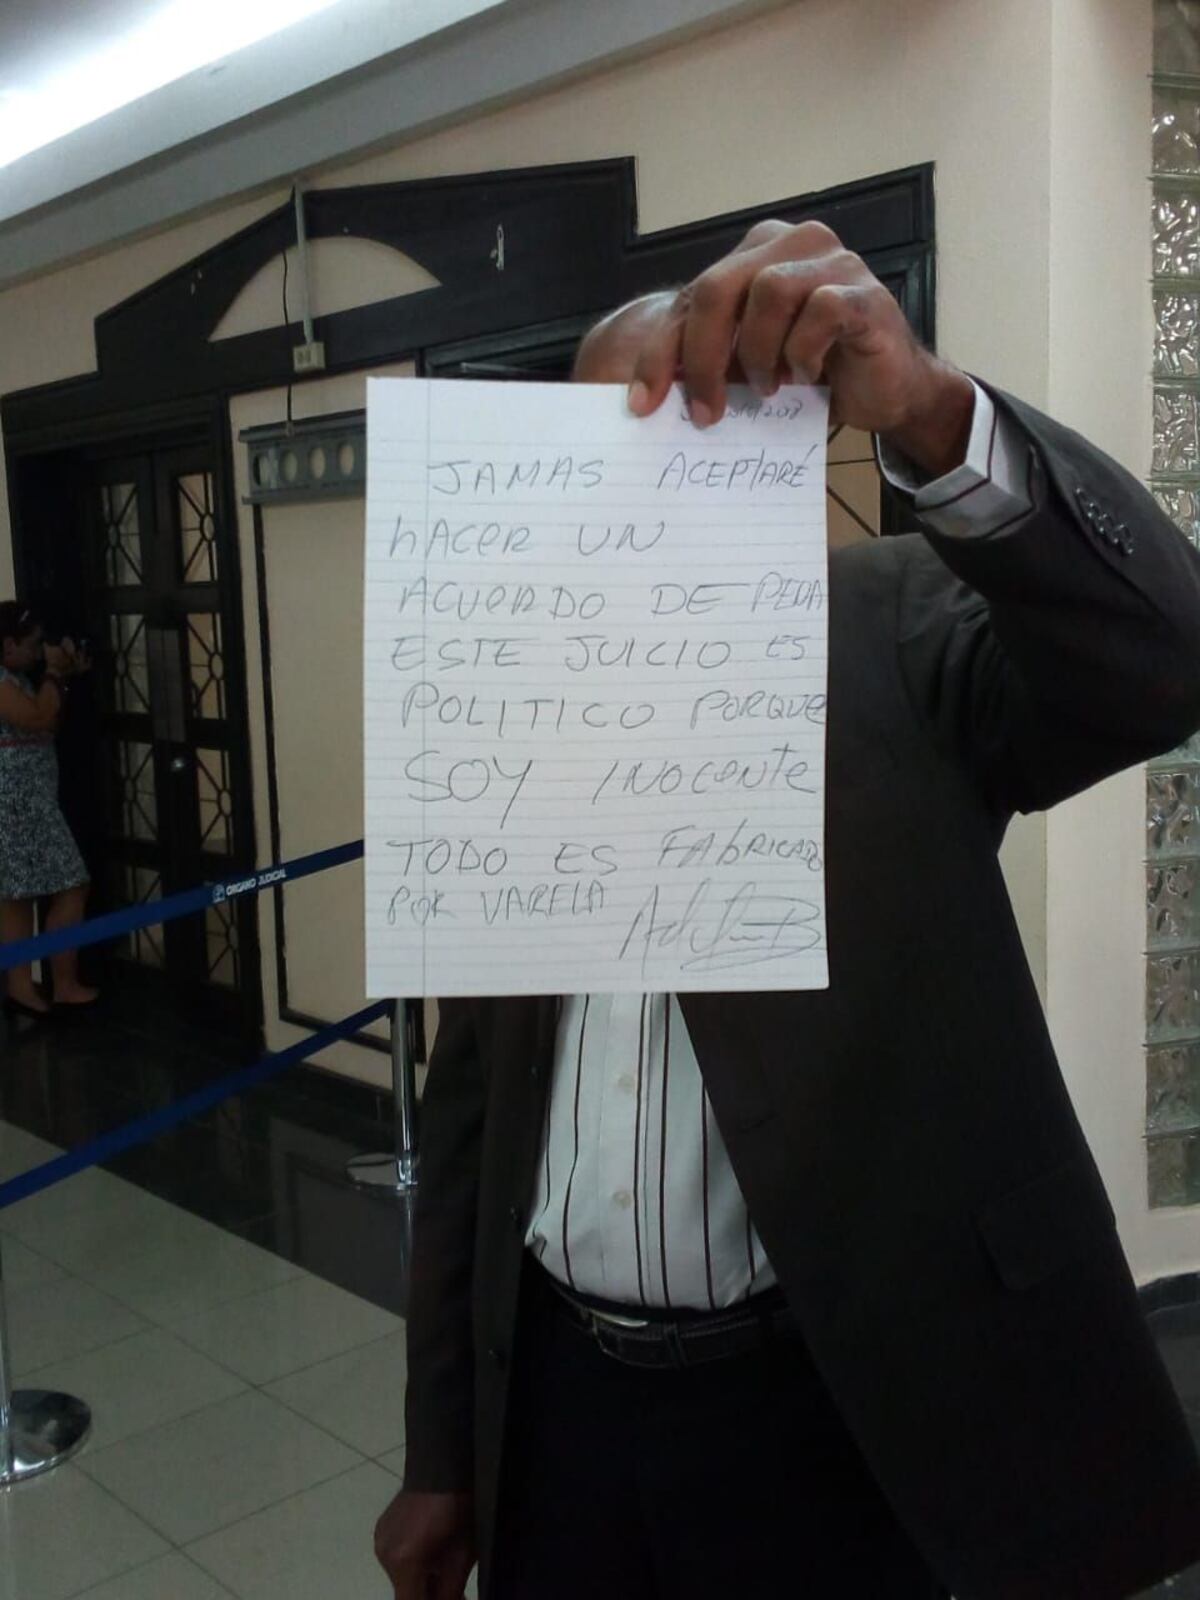 JAMAS ACEPTARÉ
hACER UN
ACUERDO DE PENA
ESTE JUICIO ES
POLITICO PORQUE
SOY INOCENTE
TODO ES FAbRICADO
POR VARELA
ORGANO JUDICIAL